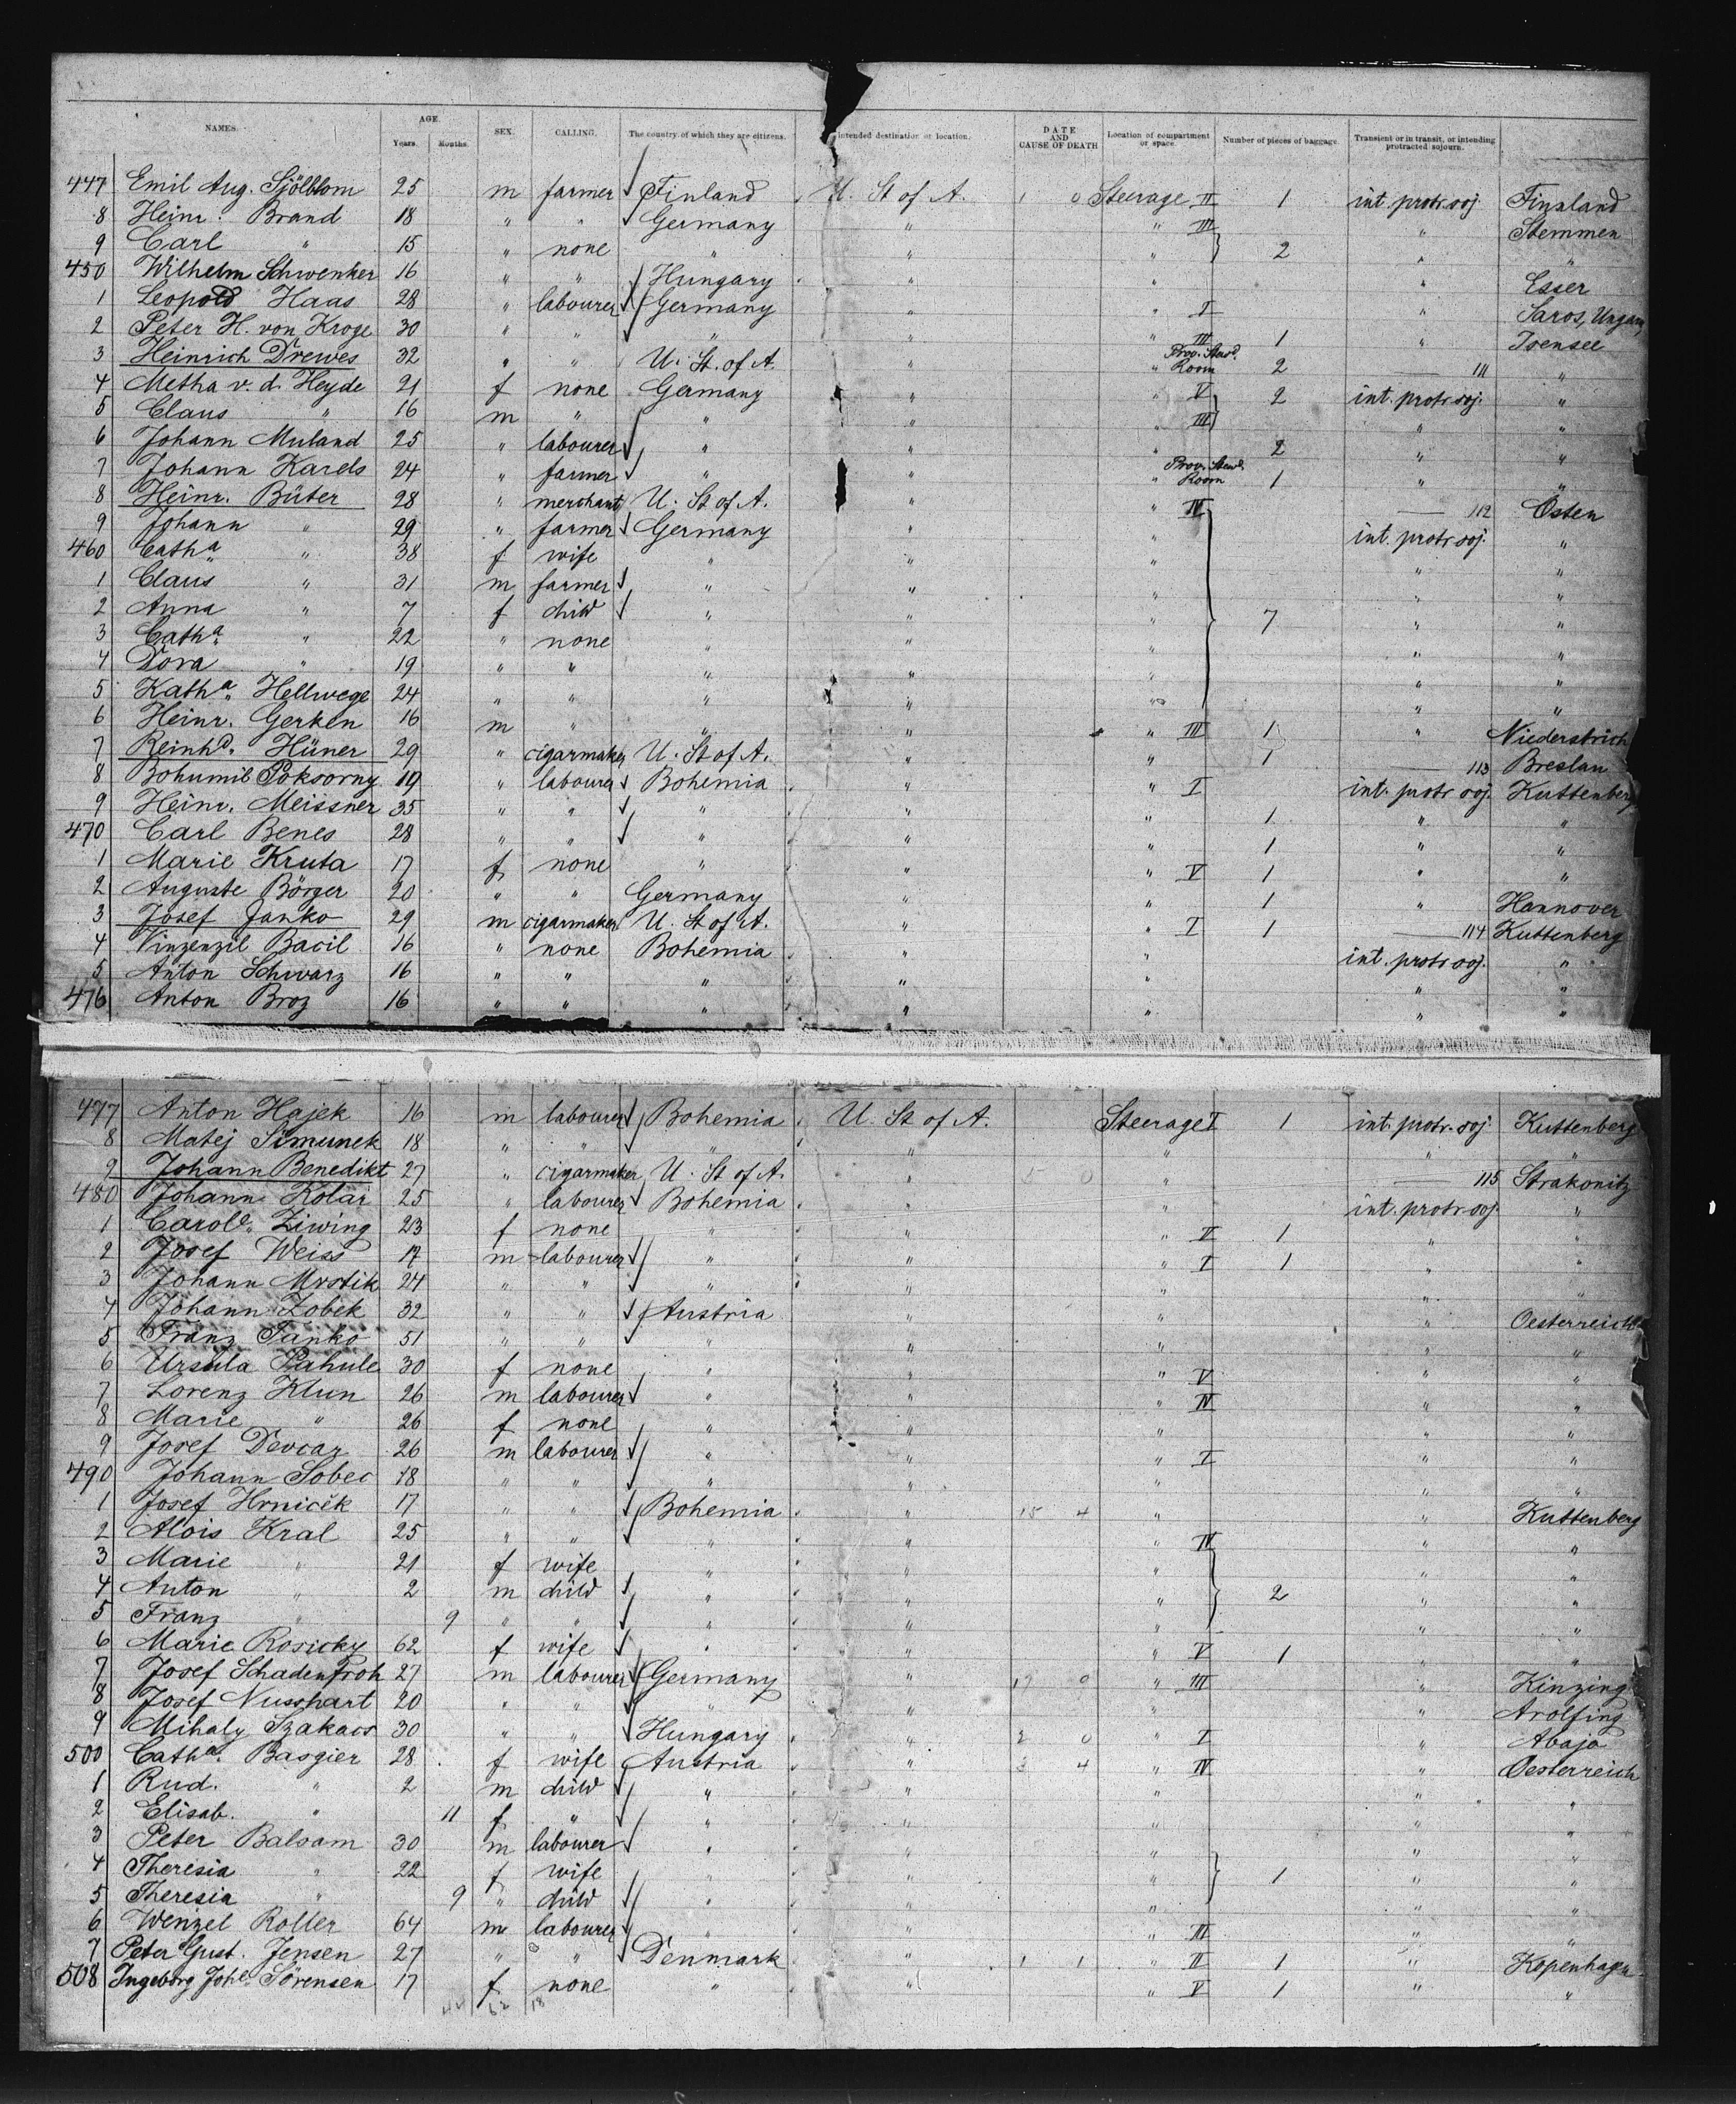 NAMES. AGE. Years. Months. SEX. CALLING. The country of which they are citizens. Intended destination or location. DATE AND CAUSE OF DEATH Location of compartment or space. Number of pieces of baggage. Transient or in transit, or intending protracted sojourn.
447 Emil Aug. Sjölblom 25 m farmer Finland U. St of A. Steerage II 1 int. protr. soj. Finnland
8 Heinr. Brand 18 " " Germany " " III " Stemmen
9 Carl " 15 " none " " " 2 " "
450 Wilhelm Schwenker 16 " " Hungary " " " Esser
1 Leopold Haas 28 " labourer Germany " " I " Saros, Ungarn
2 Peter H. von Kroge 30 " " " " " III 1 " Isensee
3 Heinrich Drewes 32 " " U. St. of A. " " Prov. Stwd. Room 2 111 "
4 Metha v. d. Heyde 21 f none Germany " " V 2 int. protr. soj. "
5 Claus " 16 m " " " " III " "
6 Johann Muland 25 " labourer " " " 2 " "
7 Johann Karels 24 " farmer " " " Prov. Stwd. Room 1 " "
8 Heinr. Büter 28 " merchant U. St of A. " " IV 112 Osten
9 Johann " 29 " farmer Germany " " int. protr. soj. "
460 Catha " 38 f wife " " " " "
1 Claus " 31 m farmer " " " " "
2 Anna " 7 f child " " " 7 " "
3 Catha " 22 " none " " " " "
4 Dora " 19 " " " " " " "
5 Katha Hellwege 24 " " " " " " "
6 Heinr. Gerken 16 m " " " " III 1 " Niederstrich
7 Reinhd. Hüner 29 " cigarmaker U. St of A. " " 1 113 Breslau
8 Bohumil Poksorny 19 " labourer Bohemia " " I int. protr soj. Kuttenberg
9 Heinr. Meissner 35 " " " " " 1 " "
470 Carl Benes 28 " " " " " 1 " "
1 Marie Kruta 17 f none " " " V 1 " "
2 Auguste Börger 20 " " Germany " " 1 " Hannover
3 Josef Janko 29 m cigarmaker U. St of A. " " I 1 114 Kuttenberg
4 Vinzenzil Bacil 16 " none Bohemia " " int. protr. soj. "
5 Anton Schwarz 16 " " " " " " "
476 Anton Broz 16 " " " " " " "
477 Anton Hajek 16 m labourer Bohemia U. St of A. Steerage I 1 int. protr. soj. Kuttenberg
8 Matej Simunek 18 " " " " " " "
9 Johann Benedikt 27 " cigarmaker U. St of A. " " 115 Strakonitz
480 Johann Kolar 25 " labourer Bohemia " " int. protr. soj. "
1 Carole. Ziwing 23 f none " " " V 1 " "
2 Josef Weiss 17 m labourer " " " I 1 " "
3 Johann Mrstik 24 " " " " " " "
4 Johann Zobek 32 " " Austria " " " Oesterreich
5 Franz Janko 51 " " " " " " "
6 Ursula Pahule 30 f none " " " V " "
7 Lorenz Klun 26 m labourer " " " IV " "
8 Marie " 26 f none " " " " "
9 Josef Devcar 26 m labourer " " " I " "
490 Johann Sobec 18 " " " " " " "
1 Josef Hrnicěk 17 " " Bohemia " 15 4 " " Kuttenberg
2 Alois Kral 25 " " " " " IV " "
3 Marie " 21 f wife " " " " "
4 Anton " 2 m child " " " 2 " "
5 Franz " 9 " " " " " " "
6 Marie Rosicky 62 f wife " " " V 1 " "
7 Josef Schadenfroh 27 m labourer Germany " " III " Kinzing
8 Josef Nusshart 20 " " " " " " Arolfing
9 Mihaly Szakacs 30 " " Hungary " 2 0 " I " Abajo
500 Catha. Basgier 28 f wife Austria " 3 4 " IV " Oesterreich
1 Rud. " 2 m child " " " " "
2 Elisab. " 11 f " " " " " "
3 Peter Balsam 30 m labourer " " " " "
4 Theresia " 22 f wife " " " 1 " "
5 Theresia " 9 " child " " " " "
6 Wenzel Roller 64 m labourer " " " III " "
7 Peter Gust. Jensen 27 " " Denmark " 1 1 " II 1 " Kopenhagen
508 Ingeborg Johe. Sörensen 17 f none " " " V 1 " "